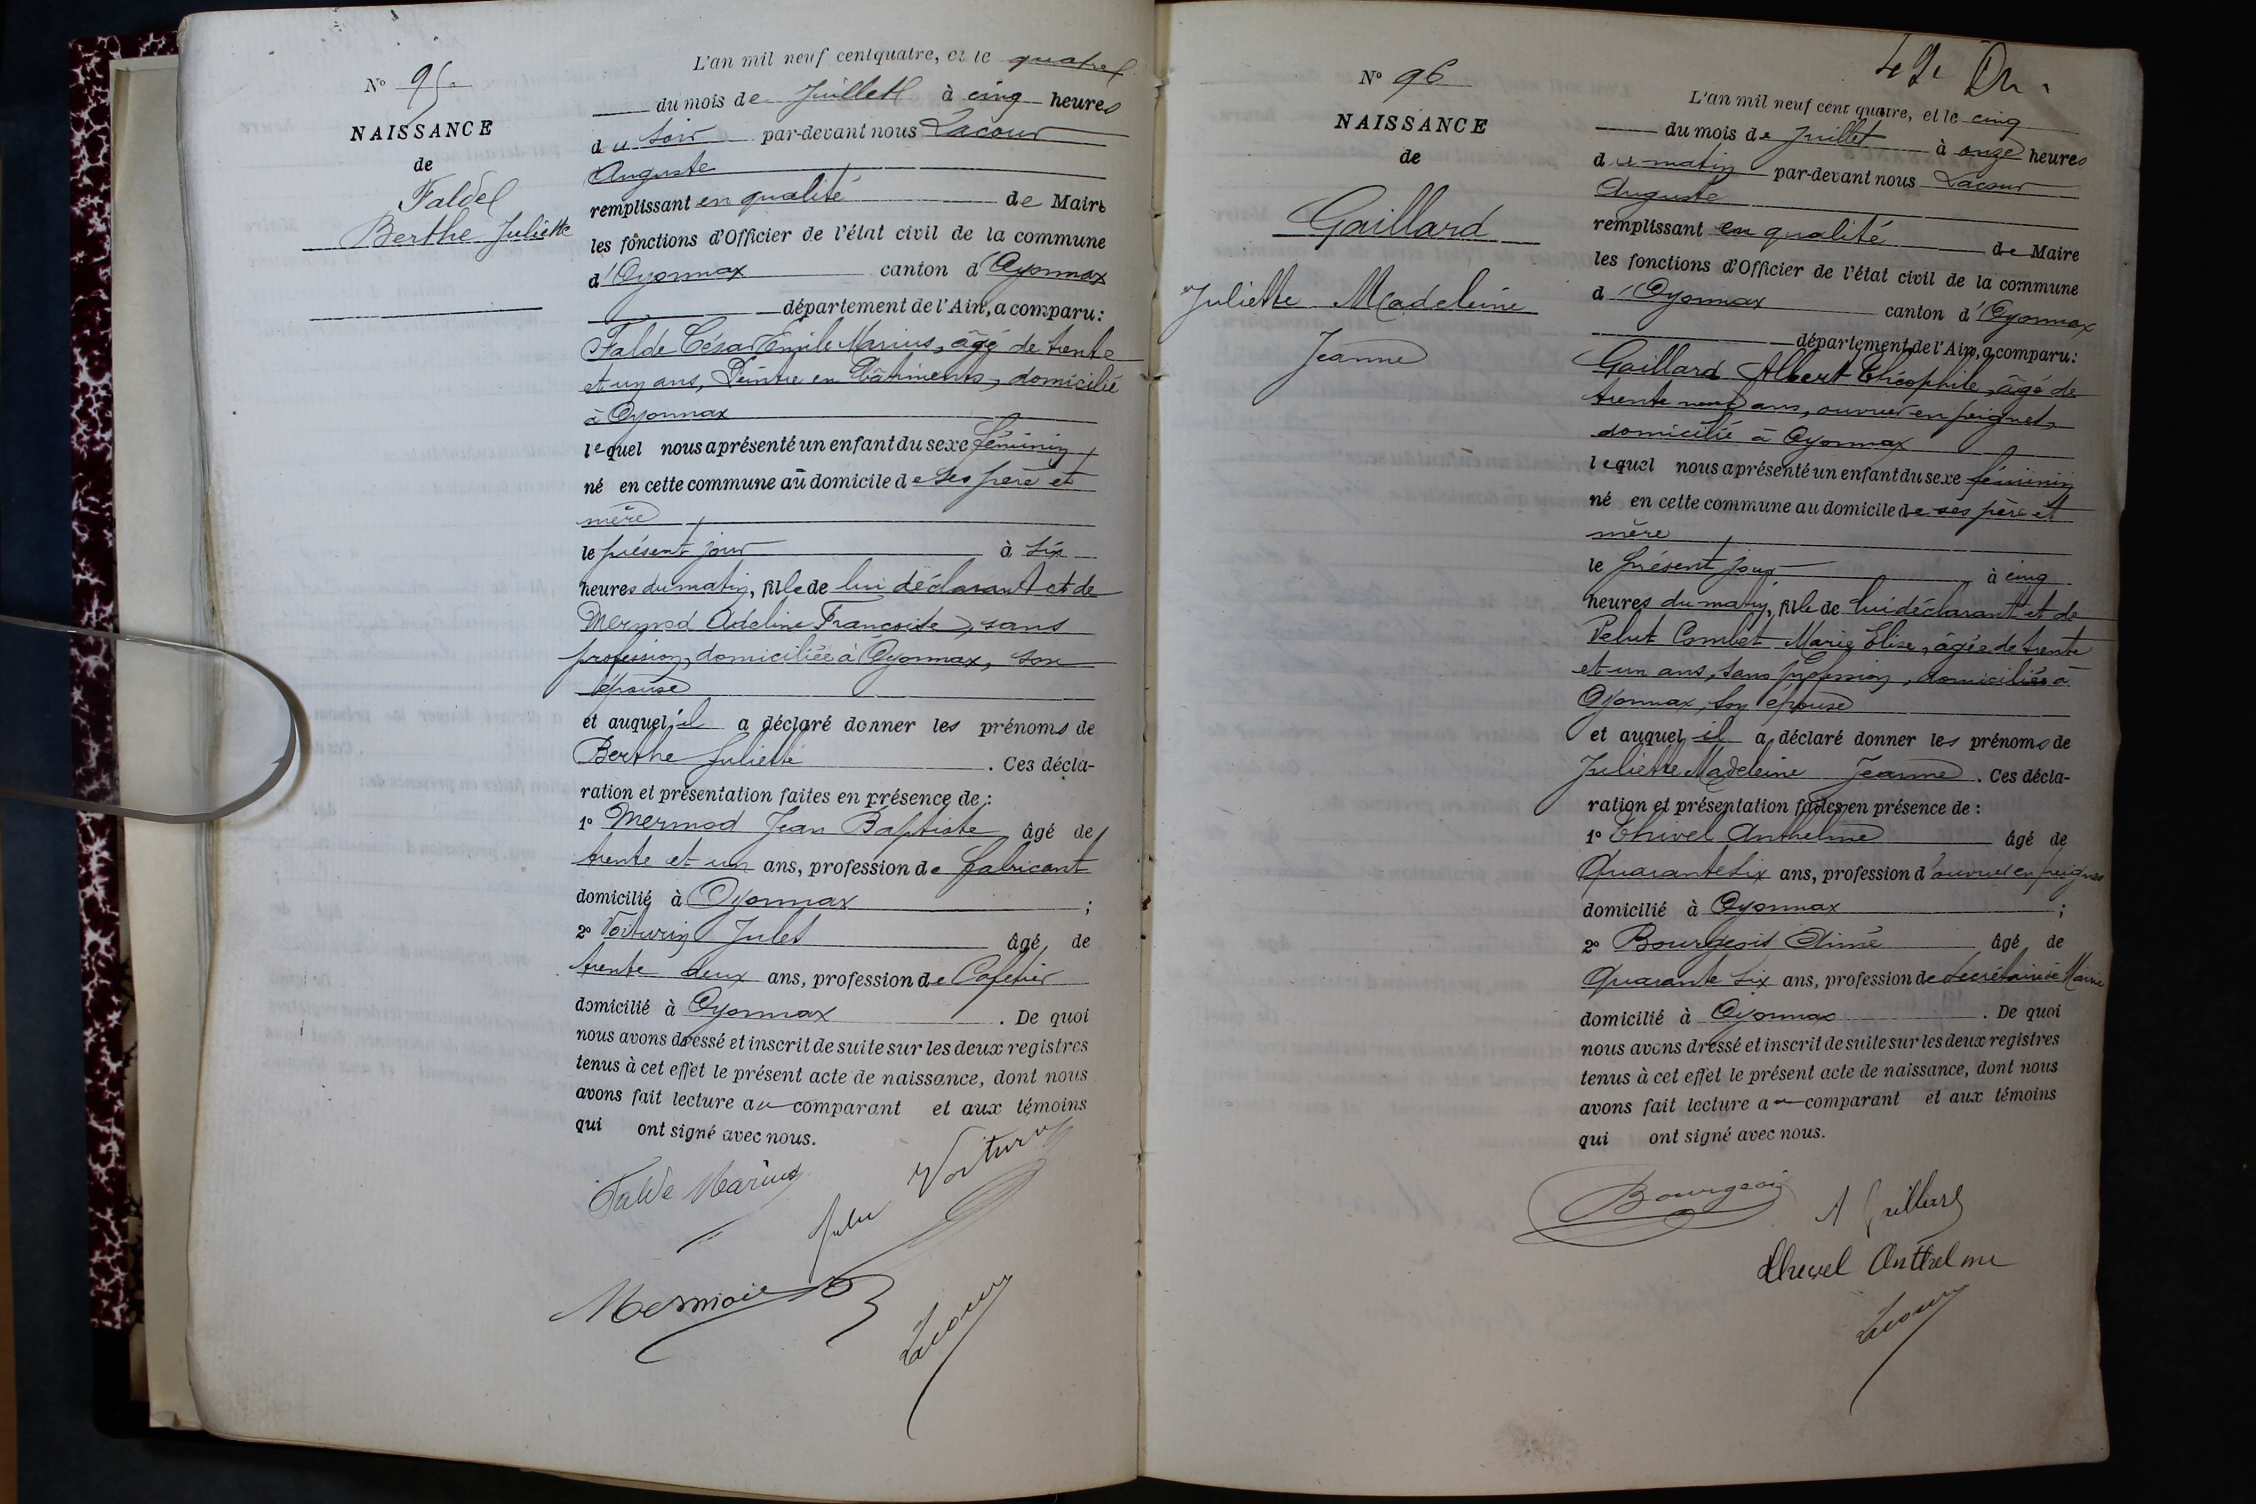 N° 95
NAISSANCE
de
Falde
Berthe Juliette
L'an mil neuf cent quatre, et le quatre
du mois de Juillet à cinq heures
du soir par-devant nous Lacour
Auguste
remplissant en qualité de Maire
les fonctions d'Officier de l'état civil de la commune
d'Oyonnax canton d'Oyonnax
département de l'Ain, a comparu:
Falde César Emile Marius, âgé de trente
et un ans, Peintre en Bâtiments, domicilié
à Oyonnax
lequel nous a présenté un enfant du sexe féminin
né en cette commune au domicile de ses père et
mère
le présent jour à six
heures du matin, fille de lui déclarant et de
Mermod Adeline Françoise, sans
profession, domiciliée à Oyonnax, son
épouse
et auquel il a déclaré donner les prénoms de
Berthe Juliette. Ces décla-
ration et présentation faites en présence de:
1° Mermod Jean Baptiste âgé de
trente et un ans, profession de fabricant
domicilié à Oyonnax;
2° Voiturin Jules âgé de
trente deux ans, profession de Cafetier
domicilié à Oyonnax. De quoi
nous avons dressé et inscrit de suite sur les deux registres
tenus à cet effet le présent acte de naissance, dont nous
avons fait lecture au comparant et aux témoins
qui ont signé avec nous.
Falde Marius
Jules Voiturin
Lacour
N° 96
NAISSANCE
de
Gaillard
Juliette Madeleine
Jeanne
L'an mil neuf cent quatre, et le cinq
du mois de Juillet à onze heures
du matin par-devant nous Lacour
Auguste
remplissant en qualité de Maire
les fonctions d'Officier de l'état civil de la commune
d'Oyonnax canton d'Oyonnax
département de l'Ain, a comparu:
Gaillard Albert Théophile, âgé de
trente neuf ans, ouvrier en peignes,
domicilié à Oyonnax
lequel nous a présenté un enfant du sexe féminin
né en cette commune au domicile de ses père et
mère
le présent jour à cinq
heures du matin, fille de lui déclarant et de
Velut Combet Marie Elise, âgée de trente
et un ans, sans profession, domiciliée à
Oyonnax, son épouse
et auquel il a déclaré donner les prénoms de
Juliette Madeleine Jeanne. Ces décla-
ration et présentation faites en présence de:
1° Thivel Anthelme âgé de
Quarante six ans, profession d'ouvrier en peignes
domicilié à Oyonnax;
2° Bourgeois Aimé âgé de
Quarante six ans, profession de secrétaire de Mairie
domicilié à Oyonnax. De quoi
nous avons dressé et inscrit de suite sur les deux registres
tenus à cet effet le présent acte de naissance, dont nous
avons fait lecture au comparant et aux témoins
qui ont signé avec nous.
Bourgeois
A Gaillard
Anthelme
Lacour